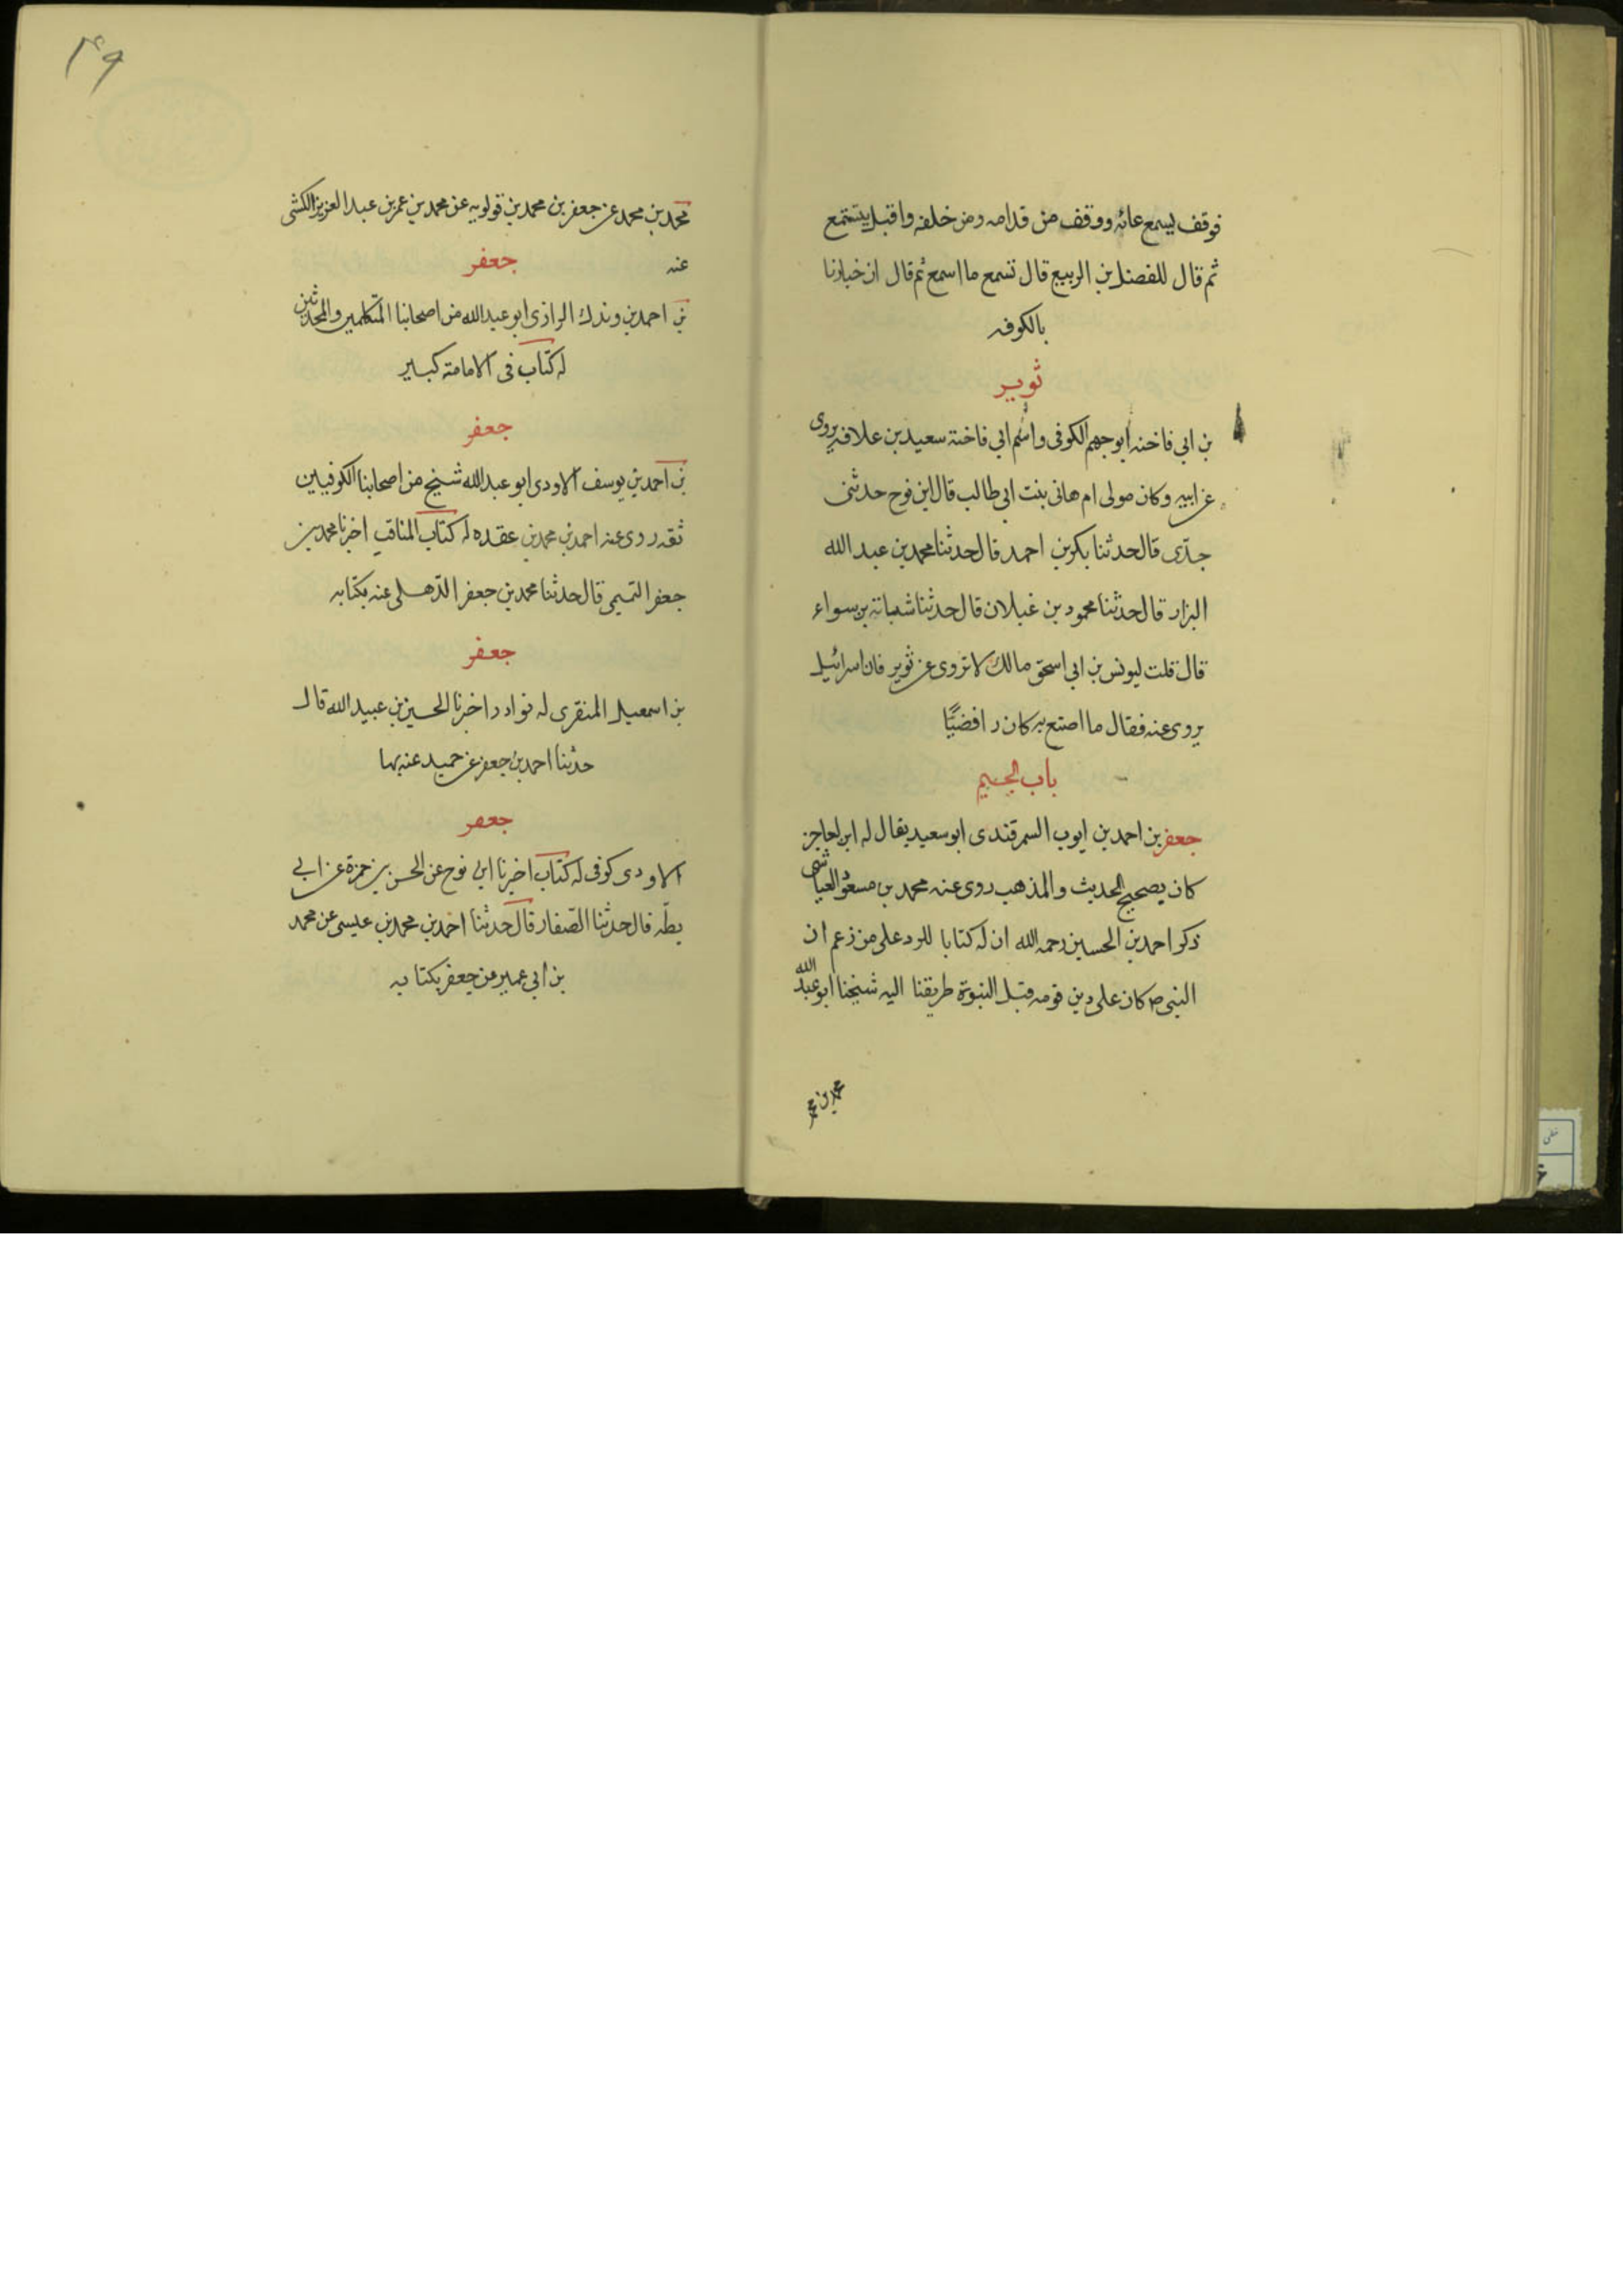 فوقف ليسمع عائه ووقف من قدامه ومن خلفه واقبل يستمع
ثم قال للفضل بن الربيع قال تسمع ما اسمع ثم قال ان خيارنا
بالكوفه
ثوير
بن ابي فاخته ابو جهم الكوفى واسم ابي فاختة سعيد بن علاقه يروى
عن ابيه وكان مولى ام هانى بنت ابى طالب قال ابن نوح حدثنى
جدّى قال حدثنا بكر بن احمد قال حدثنا محمد بن عبد الله
البزار قال حدثنا محمود بن غيلان قال حدثنا شبابة بن سواء
قال قلت ليونس بن ابى اسحق مالك لا تروى عن ثوير فان اسرائيل
يروى عنه فقال ما اصنع به كان رافضيًّا
باب الجيم
جعفر بن احمد بن ايوب السمرقندى ابو سعيد يقال له ابن العاجز
كان يصحيح الحديث والمذهب روى عنه محمد بن مسعود العياشى
ذكر احمد بن الحسين رحمه الله ان له كتابا للرد على من زعم ان
النبى ص كان على دين قومه قبل النبوة طريقنا اليه شيخنا ابو عبد الله
محمد بن محمد
۴۹
محمد بن محمد عن جعفر بن محمد بن قولويه عن محمد بن عمر بن عبد العزيز الكشى
عنه جعفر
بن احمد بن وندك الرازى ابو عبد الله من اصحابنا المتكلمين والمحدثين
له كتاب فى الامامة كبير
جعفر
بن احمد بن يوسف الاودى ابو عبد الله شيخ من اصحابنا الكوفيين
ثقه روى عنه احمد بن محمد بن عقده له كتاب المناقب اخبرنا محمد بن
جعفر التميمى قال حدثنا محمد بن جعفر الذهلى عنه بكتابه
جعفر
بن اسمعيل المنقرى له نوادر اخبرنا الحسين بن عبيد الله قال
حدثنا احمد بن جعفر عن حميد عنه بها
جعفر
الاودى كوفى له كتاب اخبرنا ابن نوح عن الحسن بن حمزة عن ابي
بطّه قال حدثنا الصّفار قال حدثنا احمد بن محمد بن عيسى عن محمد
بن ابى عمير من جعفر بكتابه